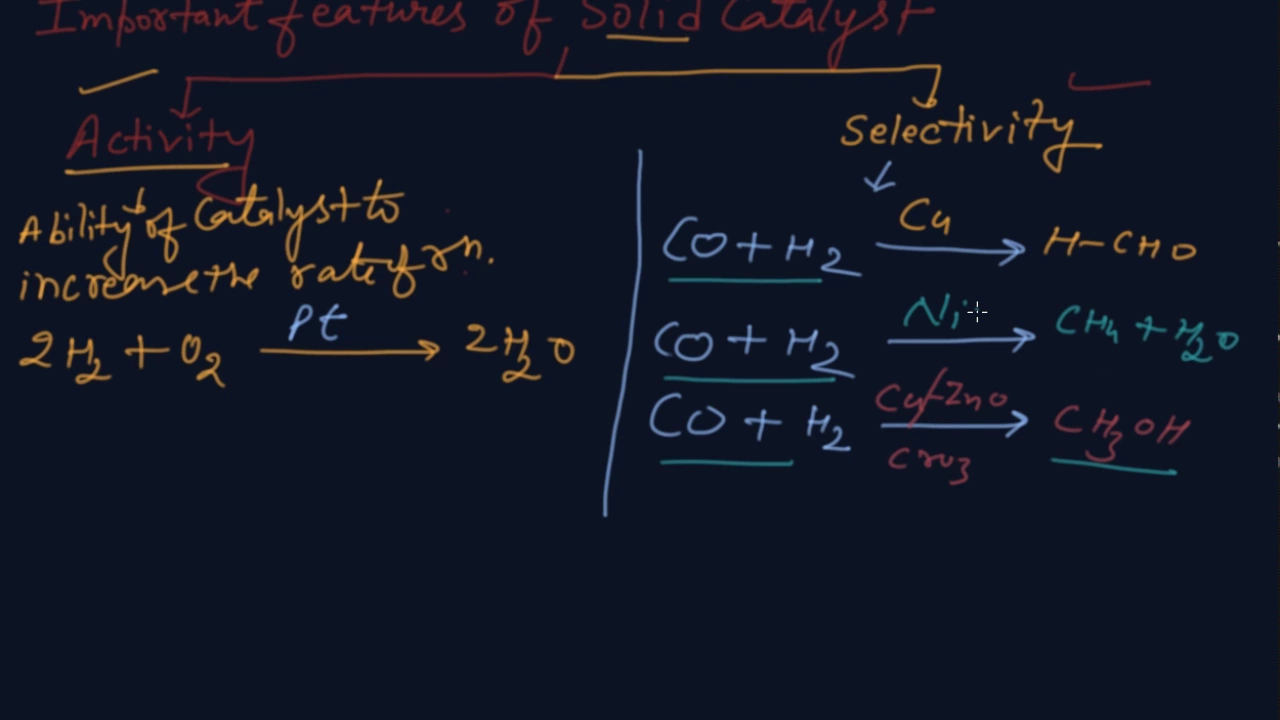 Important features of Solid Catalyst
Activity
Ability of Catalyst to
increase the rate of rxn.
2H2 + O2 Pt → 2H2O
Selectivity
CO + H2 Cu → H-CHO
CO + H2 Ni → CH4 + H2O
CO + H2 Cu/ZnO CrO3 → CH3OH